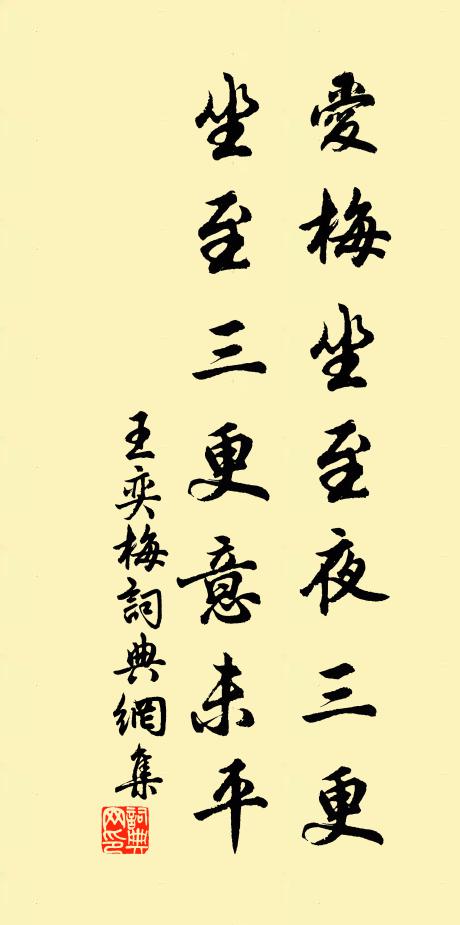 愛梅坐至夜三更
坐至三更意未平
王奕梅詞典網集
詞典網印